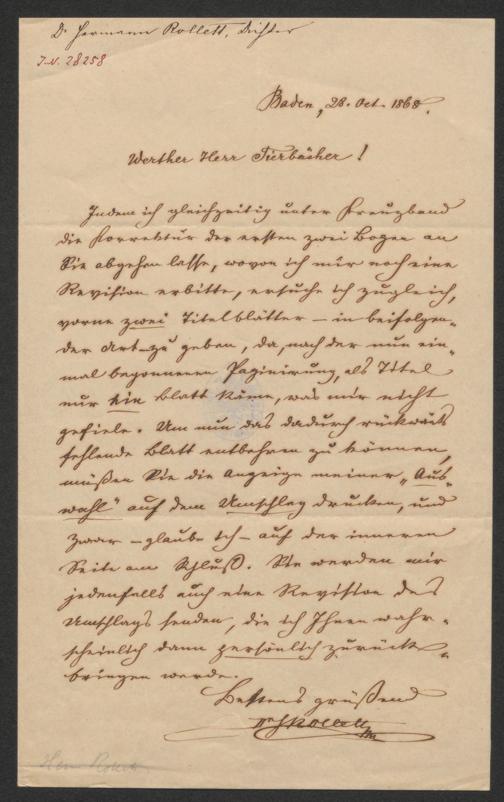 Dr Hermann Rollett, Dichter
J.-N. 28258
Baden, 28. Oct. 1868.
Werther Herr Fierbächer!
Indem ich gleichzeitig unter Kreuzband
die Korrektur der ersten zwei Bogen an
Sie abgehen lasse, wovon ich mir noch eine
Revision erbitte, ersuche ich zugleich,
vorne zwei Titelblätter – in beifolgen-
der Art – zu geben, da, nach der nun ein-
mal begonnenen Paginirung, als Titel
nur ein Blatt käme, was mir nicht
gefiele. Um nun das dadurch rückwärts
fehlende Blatt entbehren zu können,
müßen Sie die Anzeige meiner „Aus-
wahl" auf dem Umschlag drucken, und
zwar – glaube ich – auf der inneren
Seite am Schluß. Sie werden mir
jedenfalls auch eine Revision des
Umschlags senden, die ich Ihnen wahr-
scheinlich dann persönlich zurück-
bringen werde.
Bestens grüßend
Dr HRollett